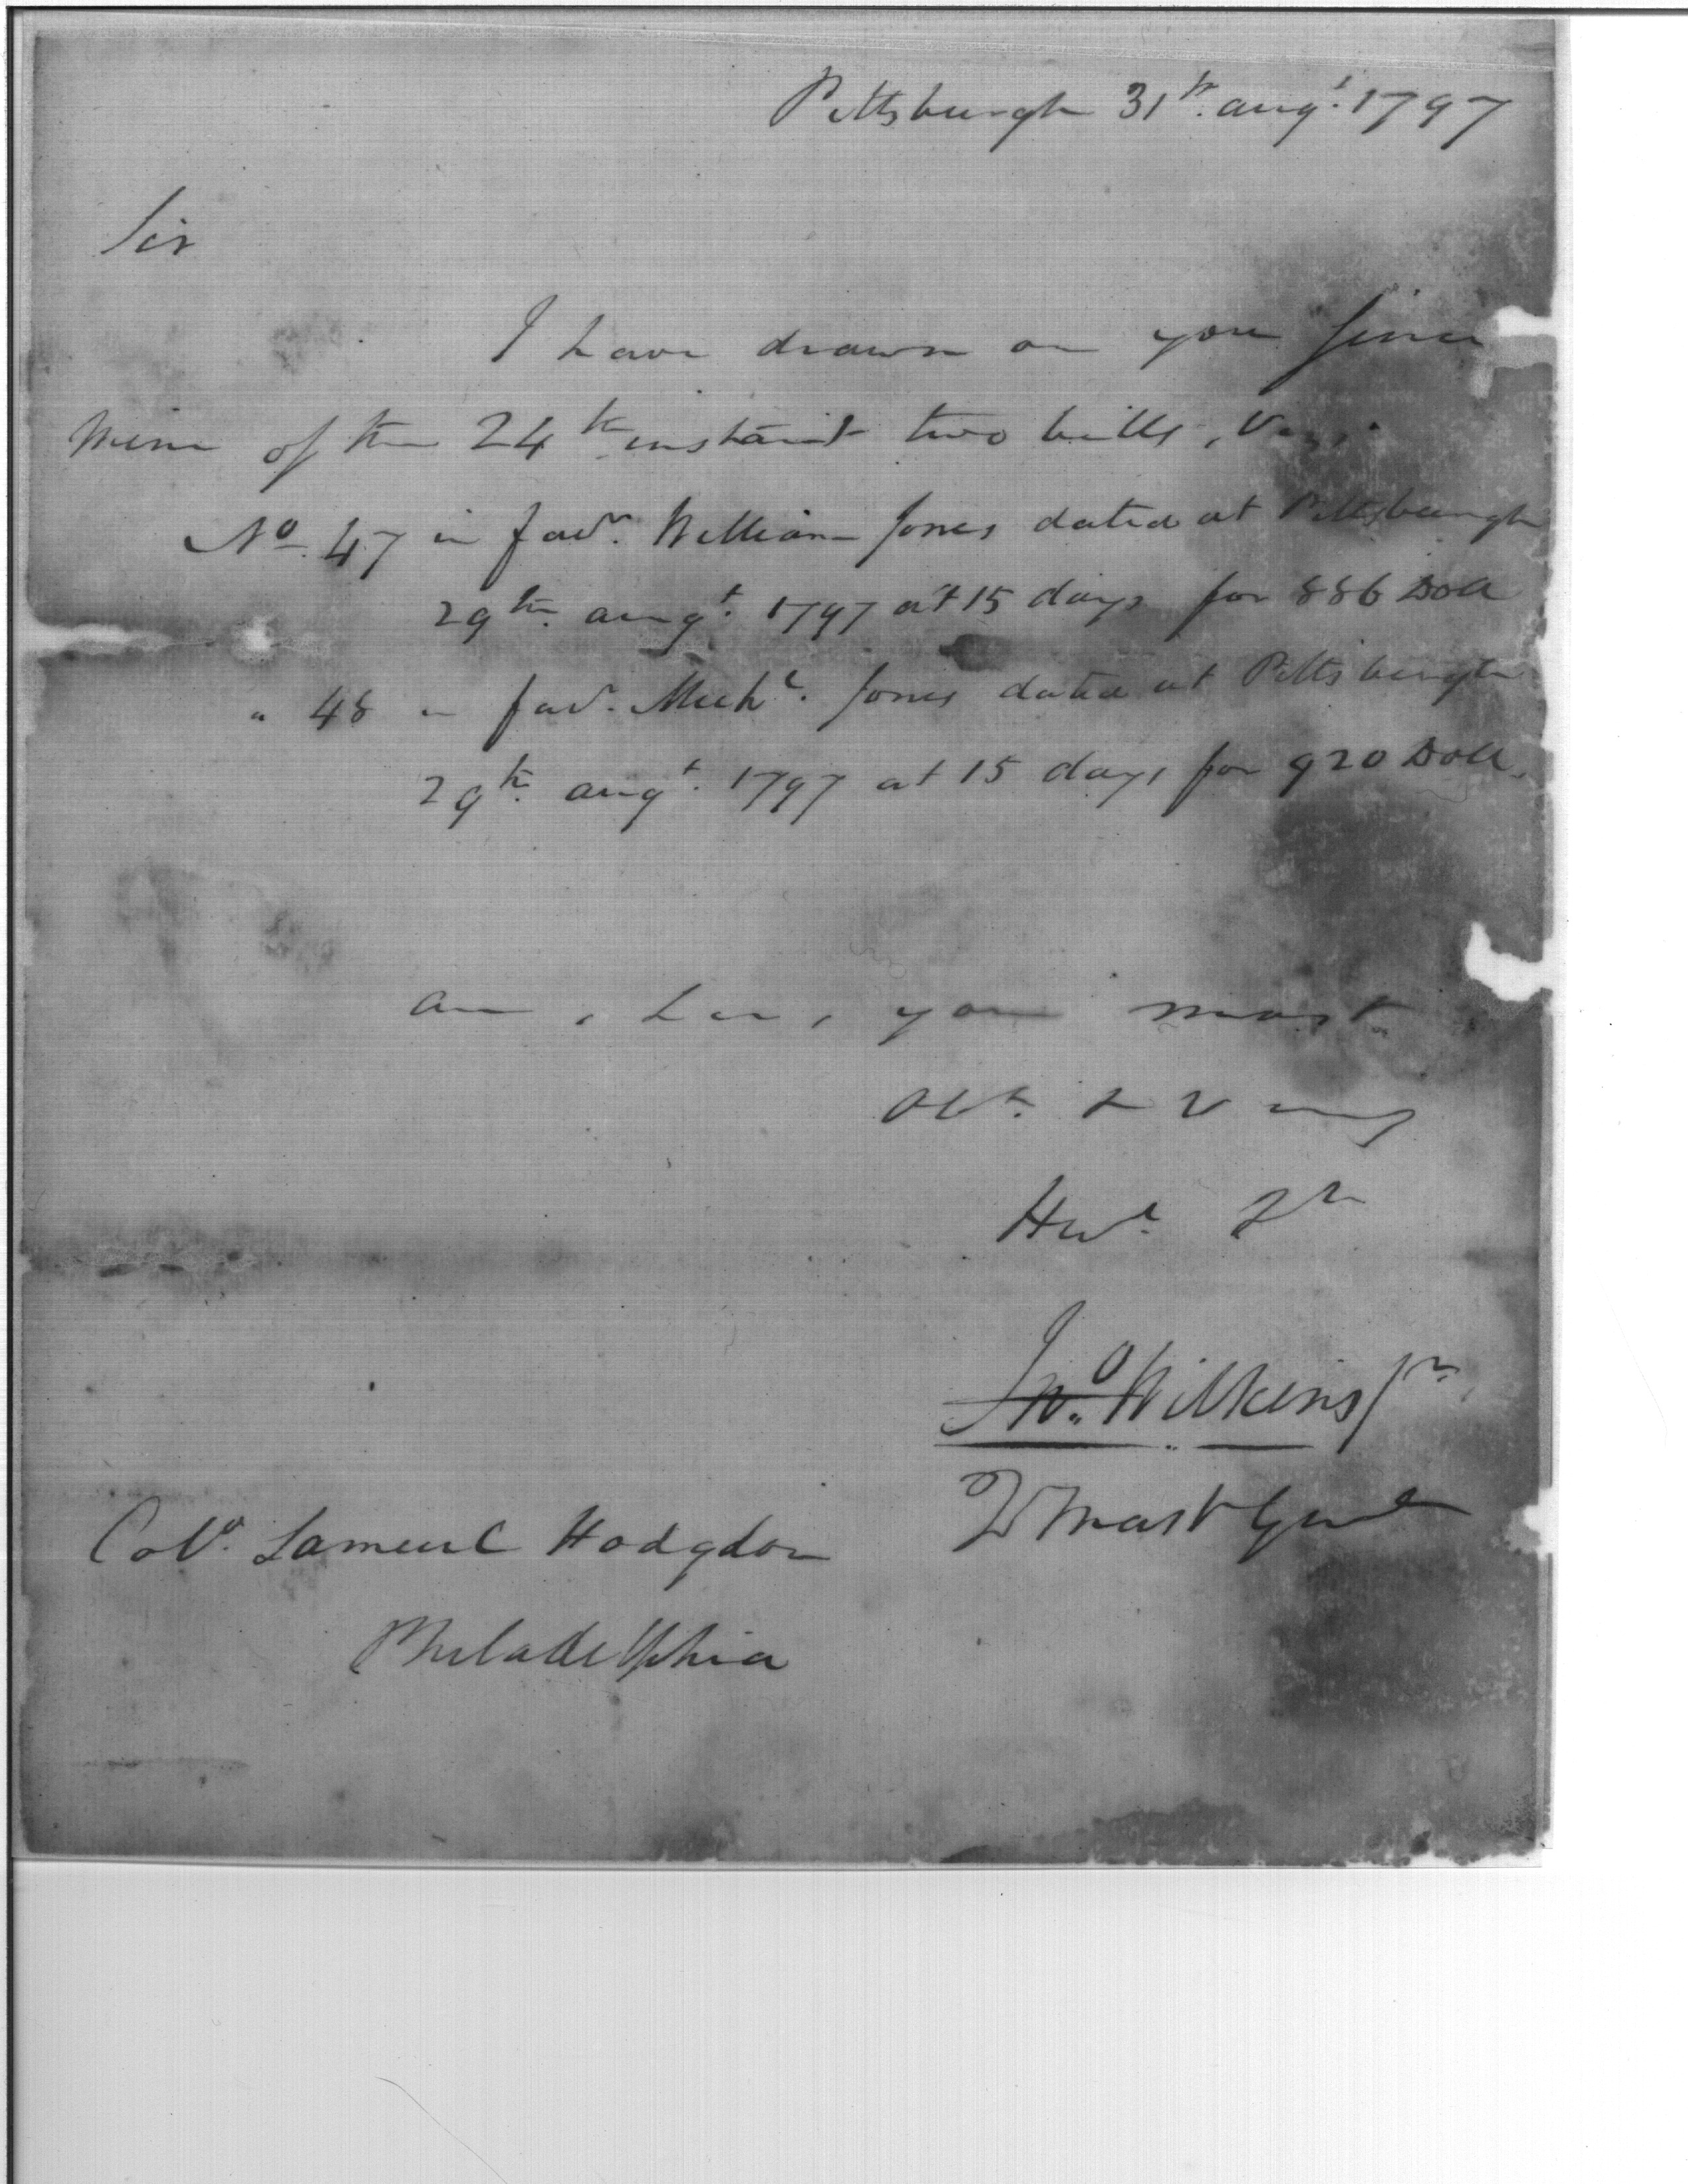 Pittsburgh 31st. augt. 1797
Sir
I have drawn on you since
mine of the 24th instant two bills, Viz.
No. 47 in favr. William Jones dated at Pittsburgh
29th. augt. 1797 at 15 days for 886 Doll
" 48 in favr. Michl. Jones dated at Pittsburgh
29th. augt. 1797 at 15 days for 920 Doll.
am, Sir, your most
Obt. & Very
Hue. St
Jno. Wilkins Jr.
QMast Genl
Colo. Samuel Hodgdon
Philadelphia